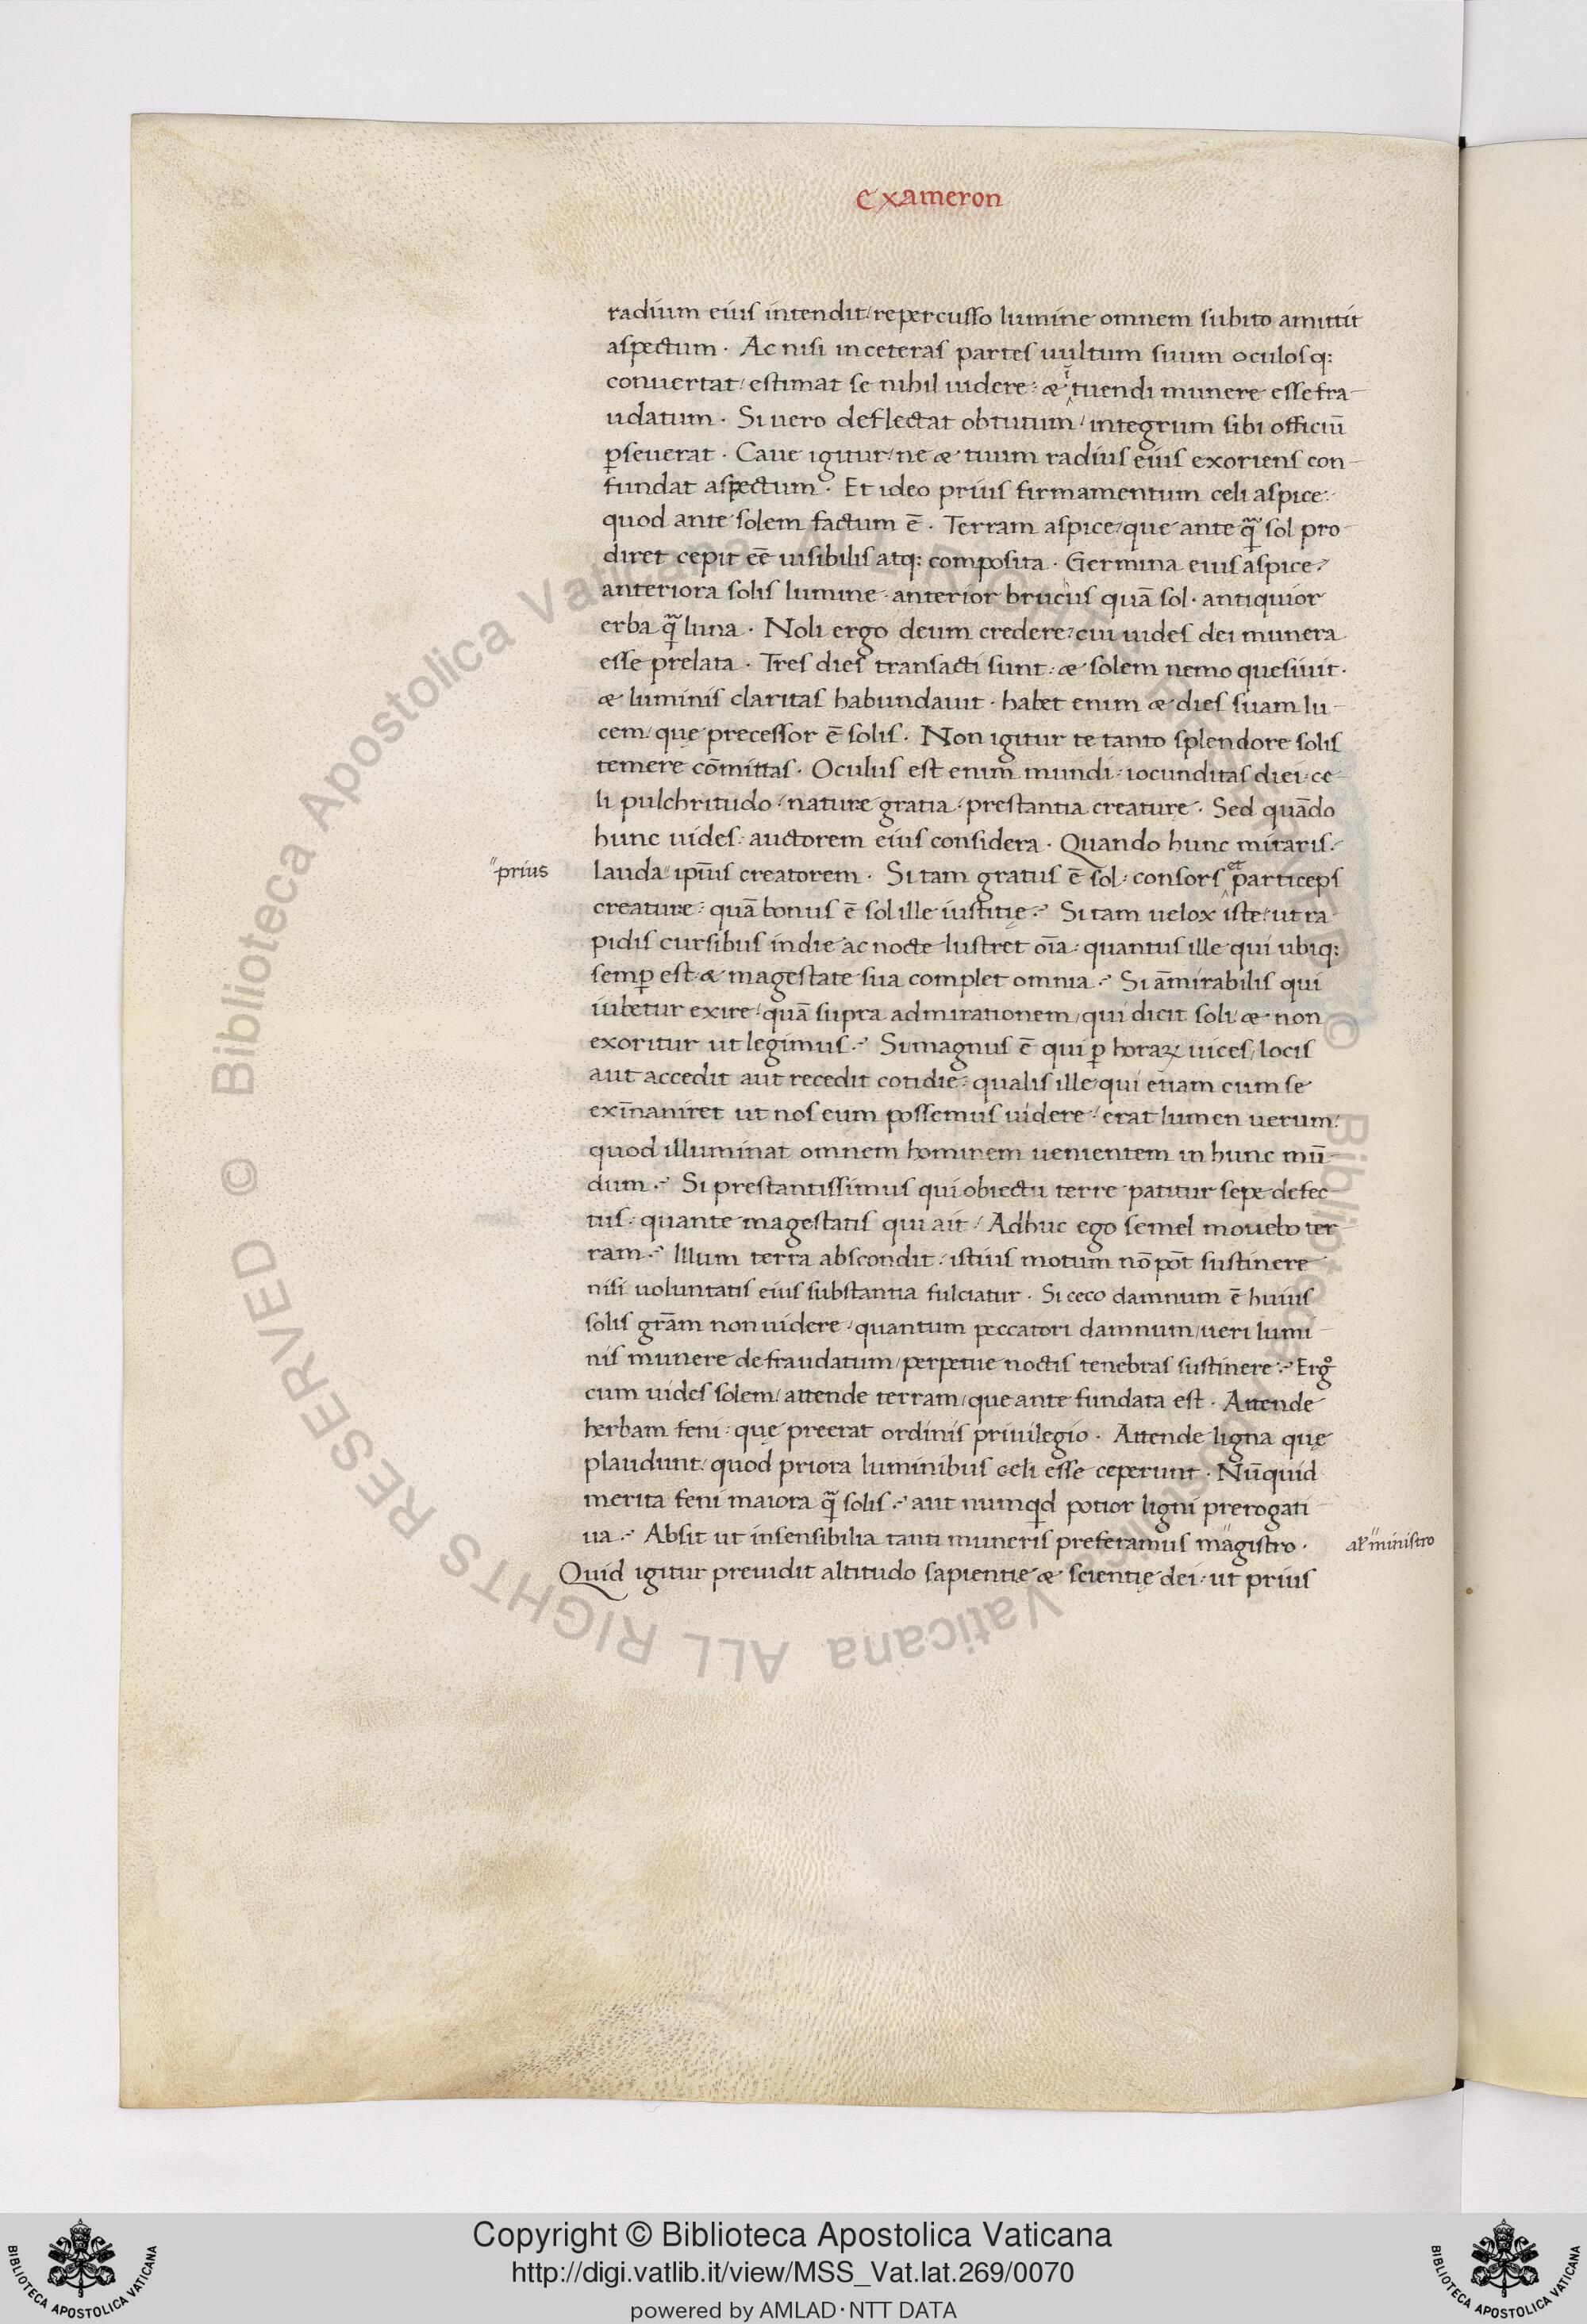 Exameron
radium eiuſ intendit/ repercuſſo lumine omnem ſubito amittit
aſpectum · Ac niſi in ceteraſ parteſ uultum ſuum oculoſq:
conuertat/ eſtimat ſe nihil uidere: & ĩtuendi munere eſſe fra-
udatum · Si uero deflectat obtutum/ integrum ſibi officiũ
ꝑſeuerat · Caue igitur/ ne & tuum radiuſ eiuſ exorienſ con-
fundat aſpectum · Et ideo priuſ firmamentum celi aſpice:
quod ante ſolem factum ē · Terram aſpice/ que ante q̃ ſol pro
diret cepit eē uiſibiliſ atq: compoſita · Germina eiuſ aſpice/
anteriora ſoliſ lumine · anterior brucuſ quã ſol · antiquior
erba q̃ luna · Noli ergo deum credere/ cui uideſ dei munera
eſſe prelata · Treſ dieſ tranſacti ſunt: & ſolem nemo queſiuit ·
& luminiſ claritaſ habundauit · habet enim & dieſ ſuam lu-
cem/ quę preceſſor ē ſoliſ · Non igitur te tanto ſplendore ſoliſ
temere cõmittaſ · Oculuſ eſt enim mundi: iocunditaſ diei: ce-
li pulchritudo/ nature gratia/ preſtantia creature · Sed quãdo
hunc uideſ: auctorem eiuſ conſidera · Quando hunc miraris:
"prius
lauda" ipĩuſ creatorem · Si tam gratuſ ē ſol: conſorſ et particepſ
creature: quã bonuſ ē ſol ille iuſtitię? Si tam uelox iſte/ ut ra
pidiſ curſibuſ in die ac nocte luſtret oĩa: quantuſ ille qui ubiq:
ſemꝑ eſt & mageſtate ſua complet omnia? Si ãmirabiliſ qui
iubetur exire/ quã ſupra admirationem/ qui dicit ſoli/ & non
exoritur ut legimuſ? Si magnuſ ē qui ꝑ horaꝝ uiceſ/ lociſ
aut accedit aut recedit cotidie: qualiſ ille/ qui etiam cum ſe
exĩnaniret ut noſ eum poſſemuſ uidere/ erat lumen uerum/
quod illuminat omnem hominem uenientem in hunc mũ-
dum? Si preſtantiſſimuſ qui obiectu terre patitur ſepe defec-
tuſ: quante mageſtatiſ qui ait/ Adhuc ego ſemel mouebo ter
ram? Illum terra abſcondit/ iſtiuſ motum nõ põt ſuſtinere
niſi uoluntatiſ eiuſ ſubſtantia fulciatur · Si ceco damnum ē huiuſ
ſoliſ grãm non uidere/ quantum peccatori damnum/ ueri lumi-
niſ munere defraudatum/ perpetue noctiſ tenebraſ ſuſtinere? Ergo
cum uideſ ſolem/ attende terram/ que ante fundata eſt · Attende
herbam feni: quę preerat ordiniſ priuilegio · Attende ligna quę
plaudunt/ quod priora luminibuſ celi eſſe ceperunt · Nũquid
merita feni maiora q̃ ſoliſ? aut numqid potior ligni prerogati
ua? Abſit ut inſenſibilia tanti muneriſ preferamuſ magiſtro ·
al' miniſtro
Quid igitur preuidit altitudo ſapientię & ſcientię dei: ut priuſ
Copyright © Biblioteca Apostolica Vaticana
http://digi.vatlib.it/view/MSS_Vat.lat.269/0070
powered by AMLAD·NTT DATA
BIBLIOTECA APOSTOLICA VATICANA
BIBLIOTECA APOSTOLICA VATICANA
© Biblioteca Apostolica Vaticana ALL RIGHTS RESERVED © Biblioteca Apostolica Vaticana ALL RIGHTS RESERVED